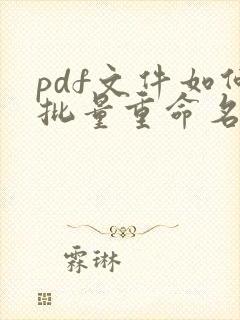 pdf文件如何
批量重命名
霖琳